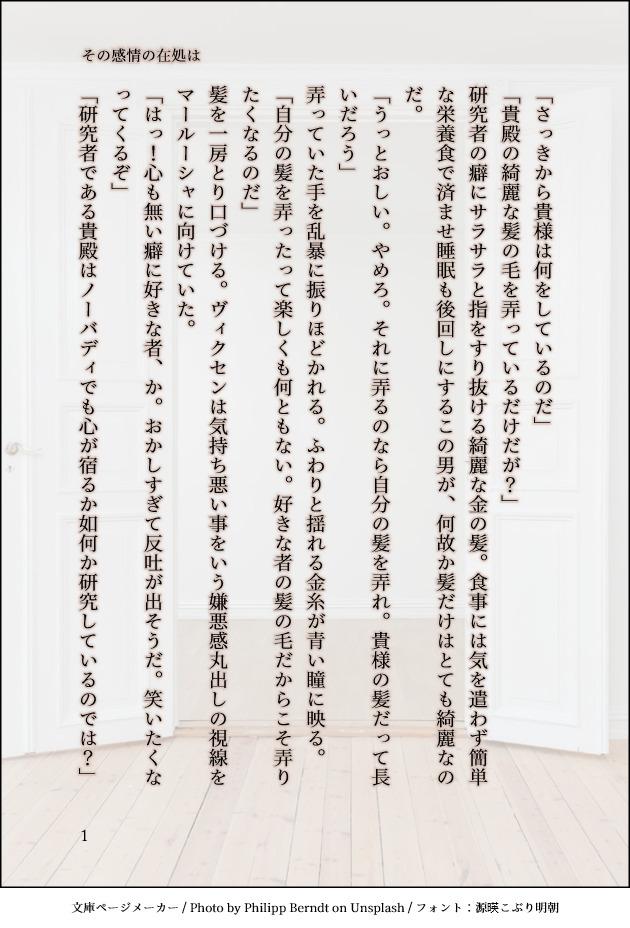 その感情の在処は
「さっきから貴様は何をしているのだ」
「貴殿の綺麗な髪の毛を弄っているだけだが？」
研究者の癖にサラサラと指をすり抜ける綺麗な金の髪。食事には気を遣わず簡単
な栄養食で済ませ睡眠も後回しにするこの男が、何故か髪だけはとても綺麗なの
だ。
「うっとおしい。やめろ。それに弄るのなら自分の髪を弄れ。貴様の髪だって長
いだろう」
弄っていた手を乱暴に振りほどかれる。ふわりと揺れる金糸が青い瞳に映る。
「自分の髪を弄ったって楽しくも何ともない。好きな者の髪の毛だからこそ弄り
たくなるのだ」
髪を一房とり口づける。ヴィクセンは気持ち悪い事をいう嫌悪感丸出しの視線を
マールーシャに向けていた。
「はっ！心も無い癖に好きな者、か。おかしすぎて反吐が出そうだ。笑いたくな
ってくるぞ」
「研究者である貴殿はノーバディでも心が宿るか如何か研究しているのでは？」
1
文庫ページメーカー / Photo by Philipp Berndt on Unsplash / フォント：源暎こぶり明朝